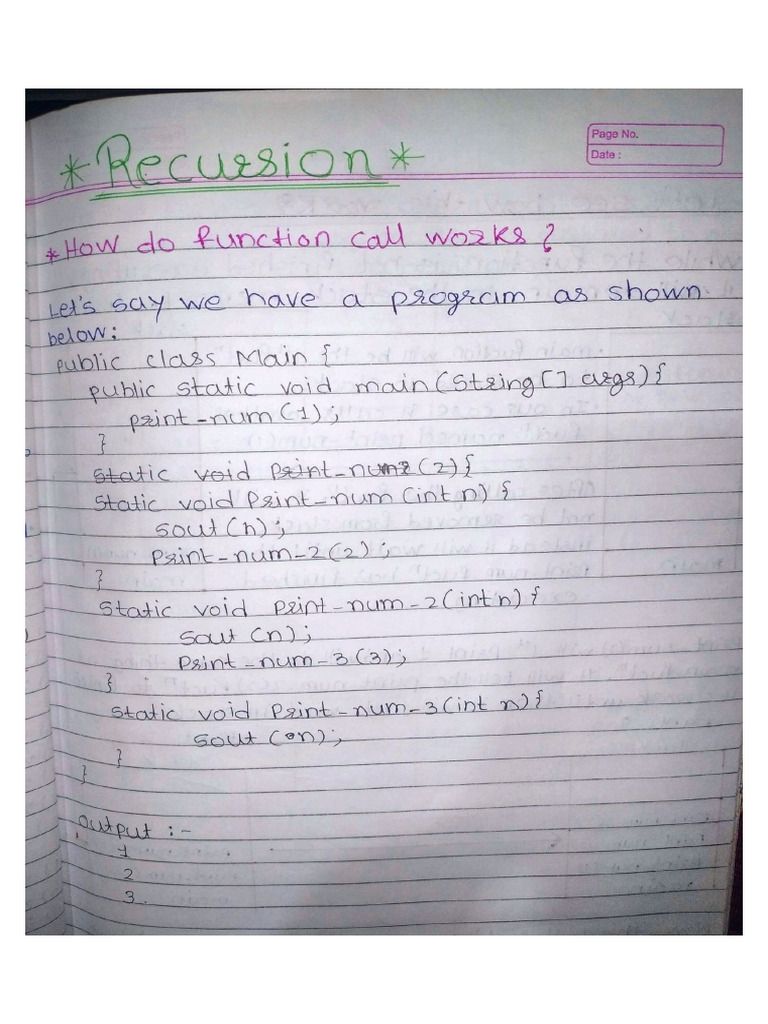 Page No.
Date :
* Recursion *
* How do function call works?
Let's say we have a program as shown
below:
public class Main {
public static void main(String [] args){
print-num(1);
}
Static void Print-num2(2){
Static void Print-num(int n) {
sout(n);
Print-num-2(2);
}
Static void Print-num-2(int n){
Sout (n);
Print-num-3(3);
}
Static void Print-num-3(int n){
Sout (n);
}
}
output :-
1
2
3.